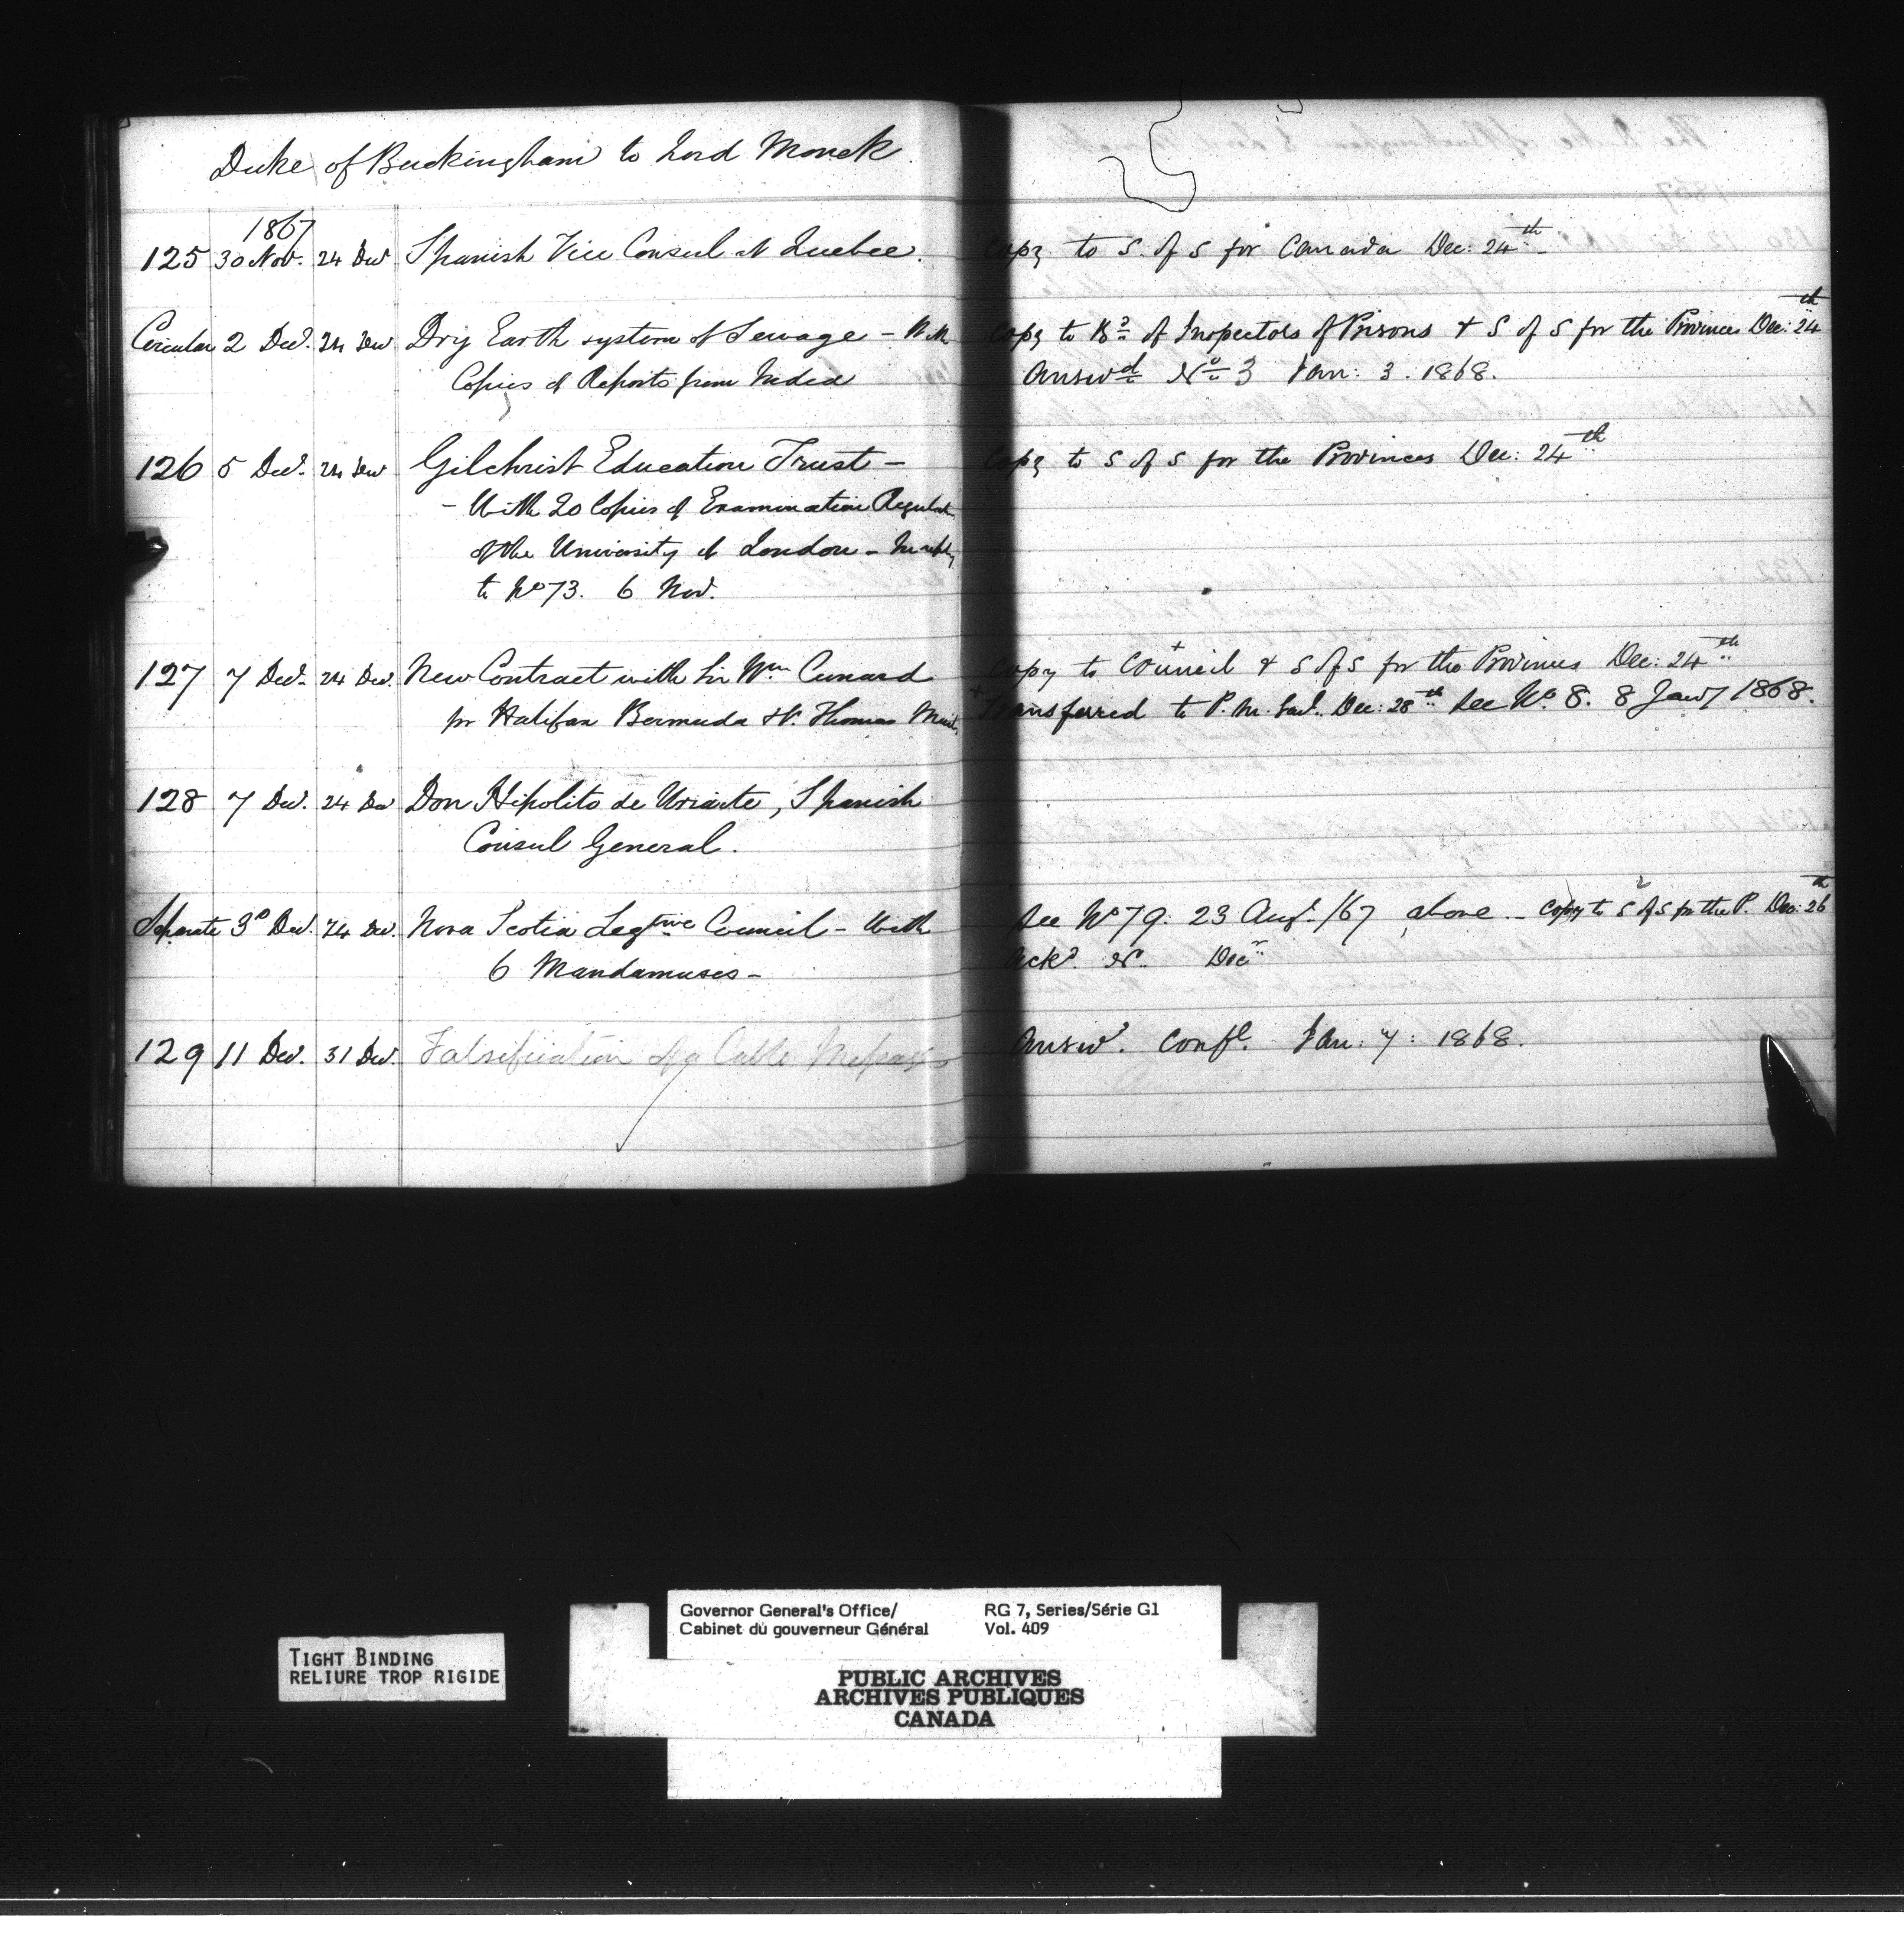 Duke of Buckingham to Lord Monck
1867
125 30 Nov. 24 Dec Spanish Vice Consul at Quebec. Copy to S. of S for Canada Dec: 24th
Circular 2 Dec. 24 Dec Dry Earth system of Sewage – With Copy to Bd of Inspectors of Prisons & S of S for the Provinces Dec: 24th
Copies of Reports from India Answd No 3 Jan: 3. 1868.
126 5 Dec. 24 Dec Gilchrist Education Trust – Copy to S of S for the Provinces Dec: 24th
– With 20 Copies of Examination Regulations
of the University of London – In reply
to No 73. 6 Nov.
127 7 Dec. 24 Dec. New Contract with Sir Wm Cunard Copy to Council + & S of S for the Provinces Dec: 24th
for Halifax Bermuda & St. Thomas Mails. + Transferred to P. M. Genl. Dec: 28th See No. 8. 8 Jany 1868.
128 7 Dec. 24 Dec Don Hipolito de Uriarte, Spanish
Consul General.
Separate 3d Dec. 24 Dec. Nova Scotia Legtive Council – With See No 79. 23 Augt. /67 above – Copy to S of S for the P. Dec: 26th
6 Mandamuses – Ackd. No. Decr
129 11 Dec. 31 Dec. Falsification of a Cable Message Answd. Confl. Jan: 7: 1868.
TIGHT BINDING
RELIURE TROP RIGIDE
Governor General's Office/ RG 7, Series/Série G1
Cabinet du gouverneur Général Vol. 409
PUBLIC ARCHIVES
ARCHIVES PUBLIQUES
CANADA